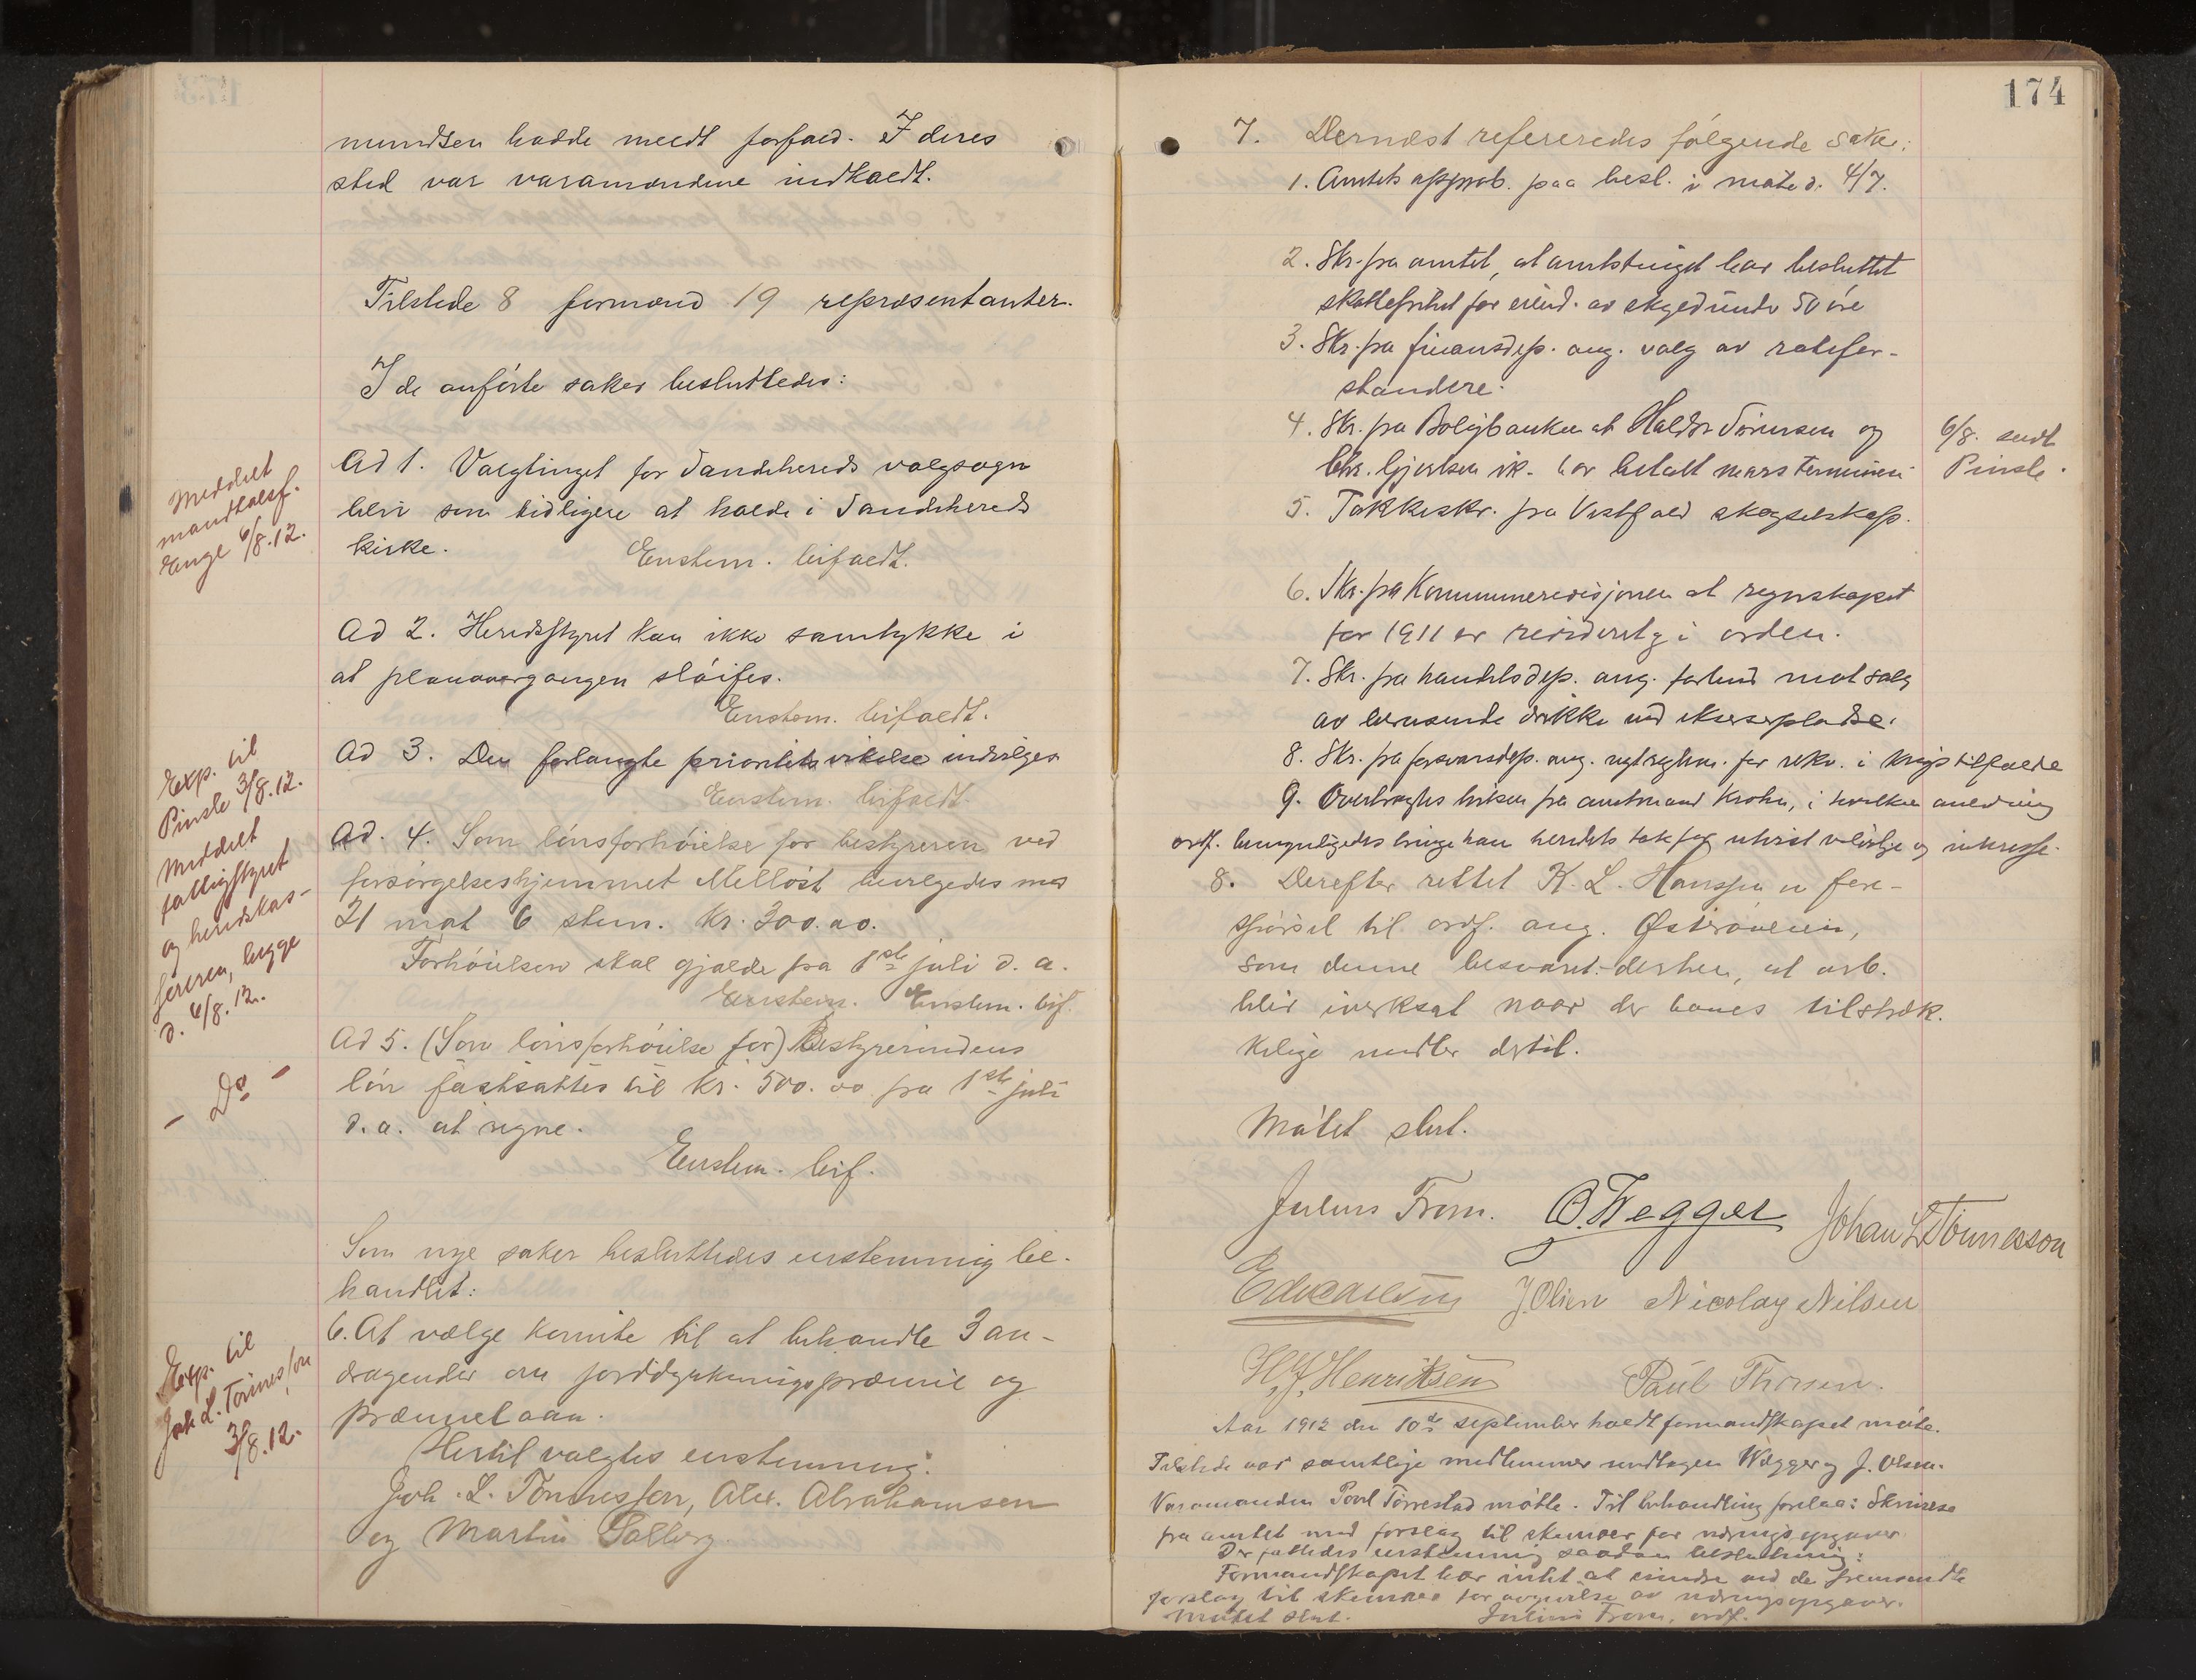 mundsen hadde meldt forfald. I deres
sted var varamændene indkaldt.
Tilstede 8 formænd 19 repræsentanter.
I de anførte saker besluttedes:
Meddelt
mandtalsf.
Enge 6/8.12.
Ad 1. Valgtinget for Sandeherreds valgsogn
blir som tidligere at holde i Sandehereds
kirke.
Enstem. bifaldt.
Ad 2. Heredsstyret kan ikke samtykke i
at planovergangen sløifes.
Enstem. bifaldt.
Exp. til
Pinsle 3/8.12.
Ad 3. Den forlangte prioritetsvikelse indvilges
Enstem. bifaldt.
Meddelt
fattigstyret
og heredskas-
sereren, begge
d. 6/8.12.
Ad. 4. Som lønsforhøielse for bestyreren ved
forsørgelseshjemmet Melløst bevilgedes mot
21 mot 6 stem. kr. 300.00.
Forhøielsen skal gjælde fra 1ste juli d. a.
Enstem. Enstem. bif.
- Do -
Ad 5. (Som lønsforhøielse for) Bestyrerindens
løn fastsattes til kr. 500.00 fra 1ste juli
d.a. at regne.
Enstem. bif.
Som nye saker besluttedes enstemmig be-
handlet:
Exp. til
Joh L. Tønnessen
3/8.12.
6. At vælge komite til at behandle 3 an-
dragender om jorddyrkningspræmie og
præmielaan.
Hertil valgtes enstemmig:
Joh. L. Tønnessen, Alex. Abrahamsen
og Martin Solberg
174
7. Dernæst refereredes følgende saker:
1. Amtets approb. paa besl. i møte d. 4/7.
2. Skr. fra amtet, at amtstinget har besluttet
skattefrihet for eiend. av skyld under 50 øre
3. Skr. fra finansdep. ang. valg av rodefor-
standere.
4. Skr. fra Boligbanken at Haldor Sørensen og
Chr. Gjertsen ik. har betalt mars terminen
6/8. sendt
Pinsle.
5. Takkeskr. fra Vestfold skogselskap.
6. Skr. fra Kommunerevisjonen at regnskapet
for 1911 er revidert og i orden.
7. Skr. fra handelsdep. ang. forbud mot salg
av berusende drikke ved ekserserpladse.
8. Skr. fra forsvarsdep. ang. nyt reglem. for rekv. i krigstilfælde
9. Overbragtes hilsen fra amtmand Krohn, i hvilken anledning
ordf. bemyndigedes bringe ham heredets tak for utvist velvilje og interesse.
8. Derefter rettet K. L. Hanssen en fore-
spørsel til ordf. ang. Østerøveien,
som denne besvaret derhen, at arb.
blir iverksat naar der haves tilstræk.
kelige midler dertil.
Møtet slut.
Julius From. O. Wegger Johan L Tønnessen
J. Olsen Nicolay Nilsen
H. J. Henriksen Paul Thorsen.
Aar 1912 den 10de september holdt formandskapet møte.
Tilstede var samtlige medlemmer undtagen Wegger og J. Olsen.
Varamanden Poul Tørrestad møtte. Til behandling forelaa: Skrivelse
fra amtet med forslag til skemaer for næringsopgaver.
Der fattedes enstemmig saadan beslutning:
Formandskapet har intet at erindre ved de fremsendte
forslag til skemaer for avgivelse av næringsopgaver.
Møtet slut. Julius From, ordf.